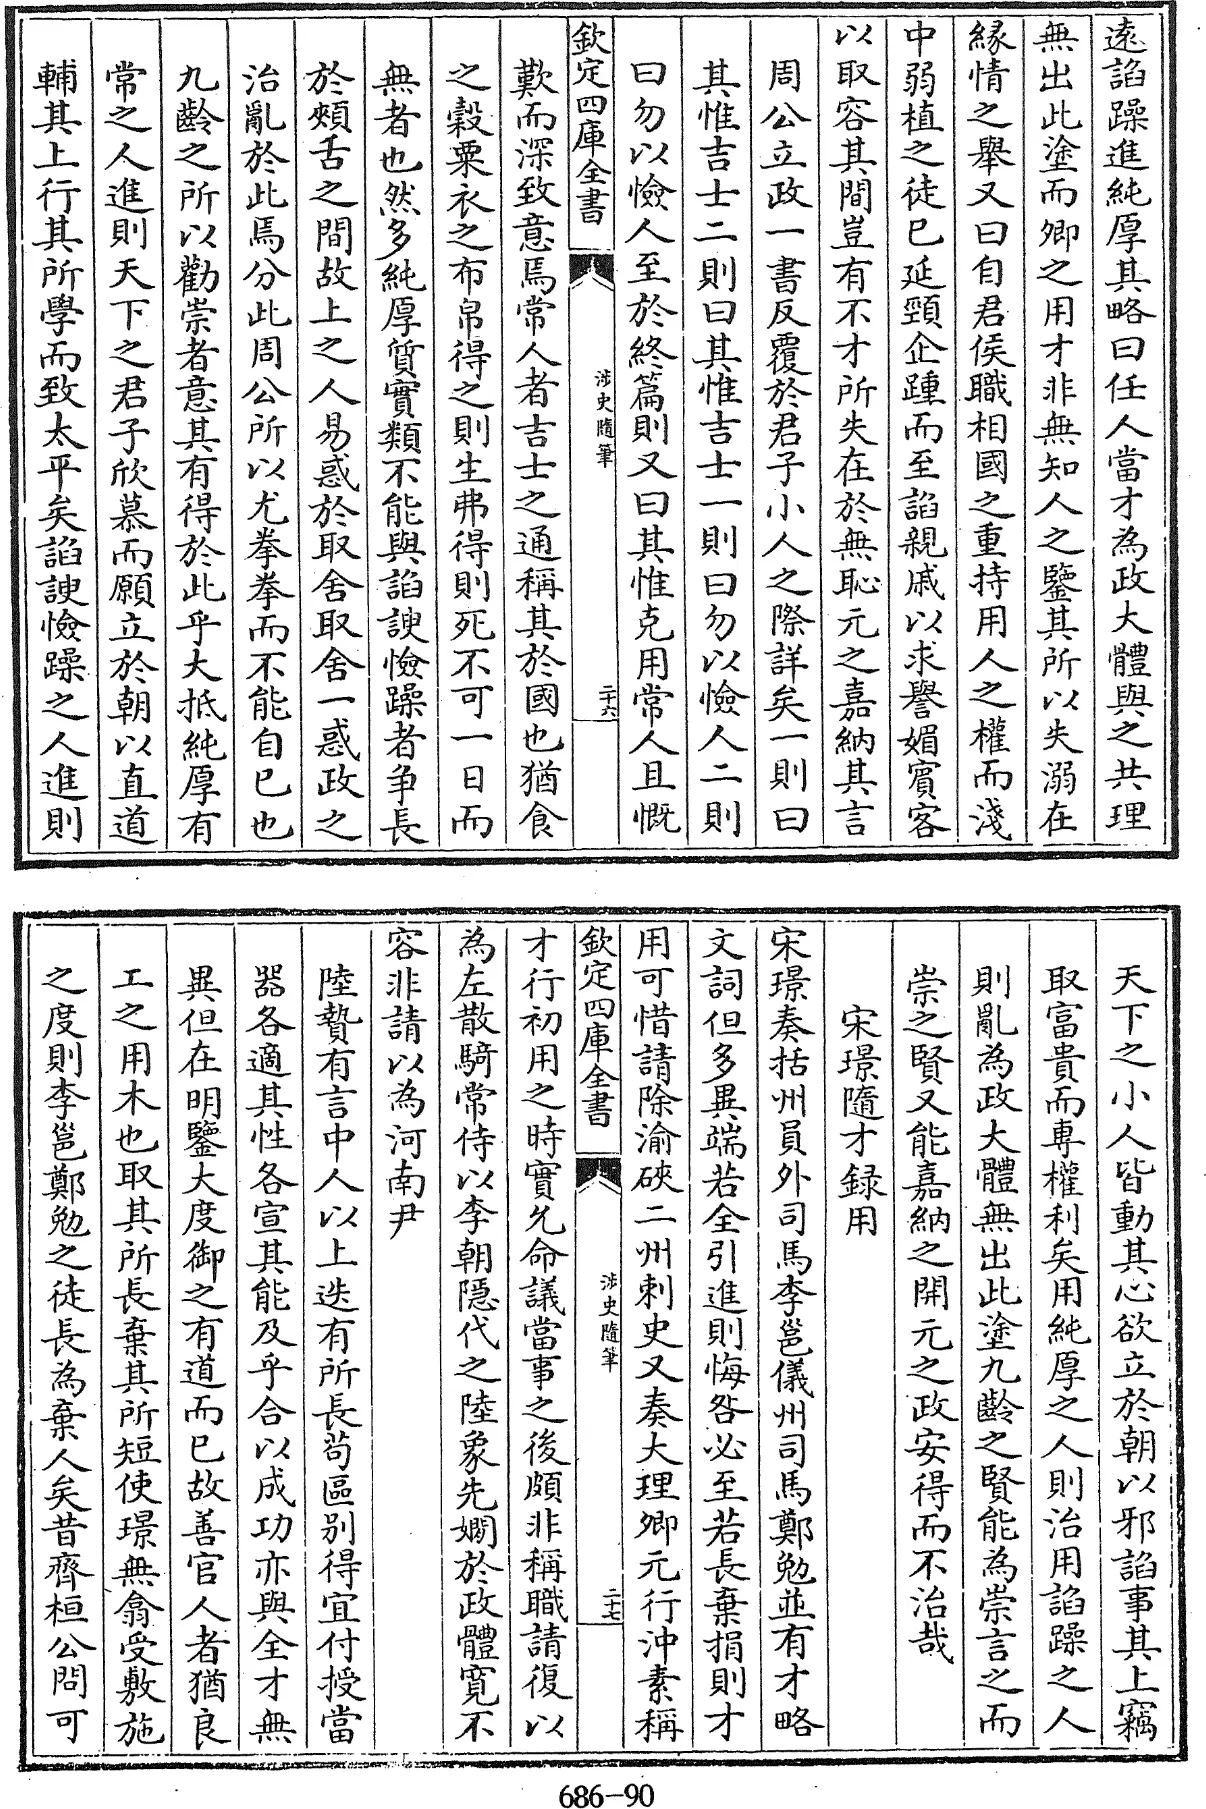 遠諂躁進純厚其略曰任人當才為政大體與之共理
無出此塗而卿之用才非無知人之鑒其所以失溺在
緣情之舉又曰自君侯職相國之重持用人之權而淺
中弱植之徒已延頸企踵而至諂親戚以求譽媚賓客
以取容其間豈有不才所失在於無恥元之嘉納其言
周公立政一書反覆於君子小人之際詳矣一則曰
其惟吉士二則曰其惟吉士一則曰勿以憸人二則
曰勿以憸人至於終篇則又曰其惟克用常人且慨
欽定四庫全書
涉史隨筆
二十六
歎而深致意焉常人者吉士之通稱其於國也猶食
之穀粟衣之布帛得之則生弗得則死不可一日而
無者也然多純厚質實類不能與諂諛憸躁者爭長
於頰舌之間故上之人易惑於取舍取舍一惑政之
治亂於此焉分此周公所以尤拳拳而不能自已也
九齡之所以勸崇者意其有得於此乎大抵純厚有
常之人進則天下之君子欣慕而願立於朝以直道
輔其上行其所學而致太平矣諂諛憸躁之人進則
天下之小人皆動其心欲立於朝以邪諂事其上竊
取富貴而專權利矣用純厚之人則治用諂躁之人
則亂為政大體無出此塗九齡之賢能為崇言之而
崇之賢又能嘉納之開元之政安得而不治哉
宋璟隨才録用
宋璟奏括州員外司馬李邕儀州司馬鄭勉並有才略
文詞但多異端若全引進則悔咎必至若長棄捐則才
用可惜請除渝硤二州刺史又奏大理卿元行沖素稱
欽定四庫全書
涉史隨筆
二十七
才行初用之時實允命議當事之後頗非稱職請復以
為左散騎常侍以李朝隱代之陸象先嫺於政體寬不
容非請以為河南尹
陸贄有言中人以上迭有所長苟區别得宜付授當
器各適其性各宣其能及乎合以成功亦與全才無
異但在明鑒大度御之有道而已故善官人者猶良
工之用木也取其所長棄其所短使璟無翕受敷施
之度則李邕鄭勉之徒長為棄人矣昔齊桓公問可
686-90